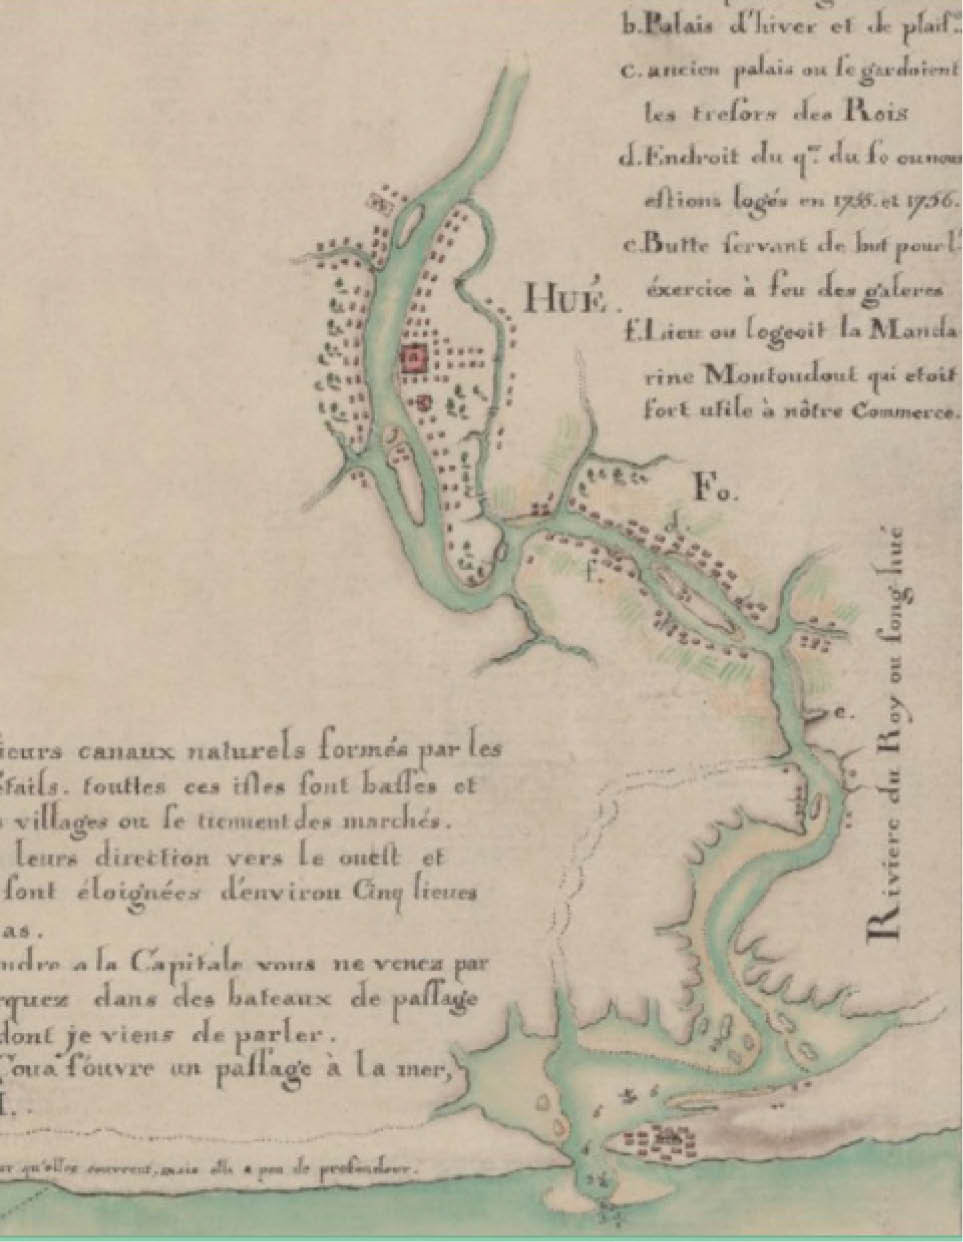 b. Palais d'hiver et de plaiſ.
c. ancien palais ou ſe gardoient
les treſors des Rois
d. Endroit du q.er du fo ou nous
eſtions logés en 1755. et 1756.
e. Butte ſervant de but pour l'
éxercice à feu des galeres
f. Lieu ou logeoit la Manda
rine Moutoudout qui etoit
fort utile à nôtre Commerce.
HUÉ.
Fo.
d.
f.
e.
Riviere du Roy ou ſong-hué
ieurs canaux naturels formés par les
étails. touttes ces iſles ſont baſſes et
villages ou ſe tiennent des marchés.
leurs direction vers le oueſt et
ſont éloignées d'environ Cinq lieues
as.
ndre a la Capitale vous ne venez par
rquez dans des bateaux de paſſage
dont je viens de parler.
Coua s'ouvre un paſſage à la mer,
ar qu'elles couvrent, mais elle a peu de profondeur.
a
6
6
6